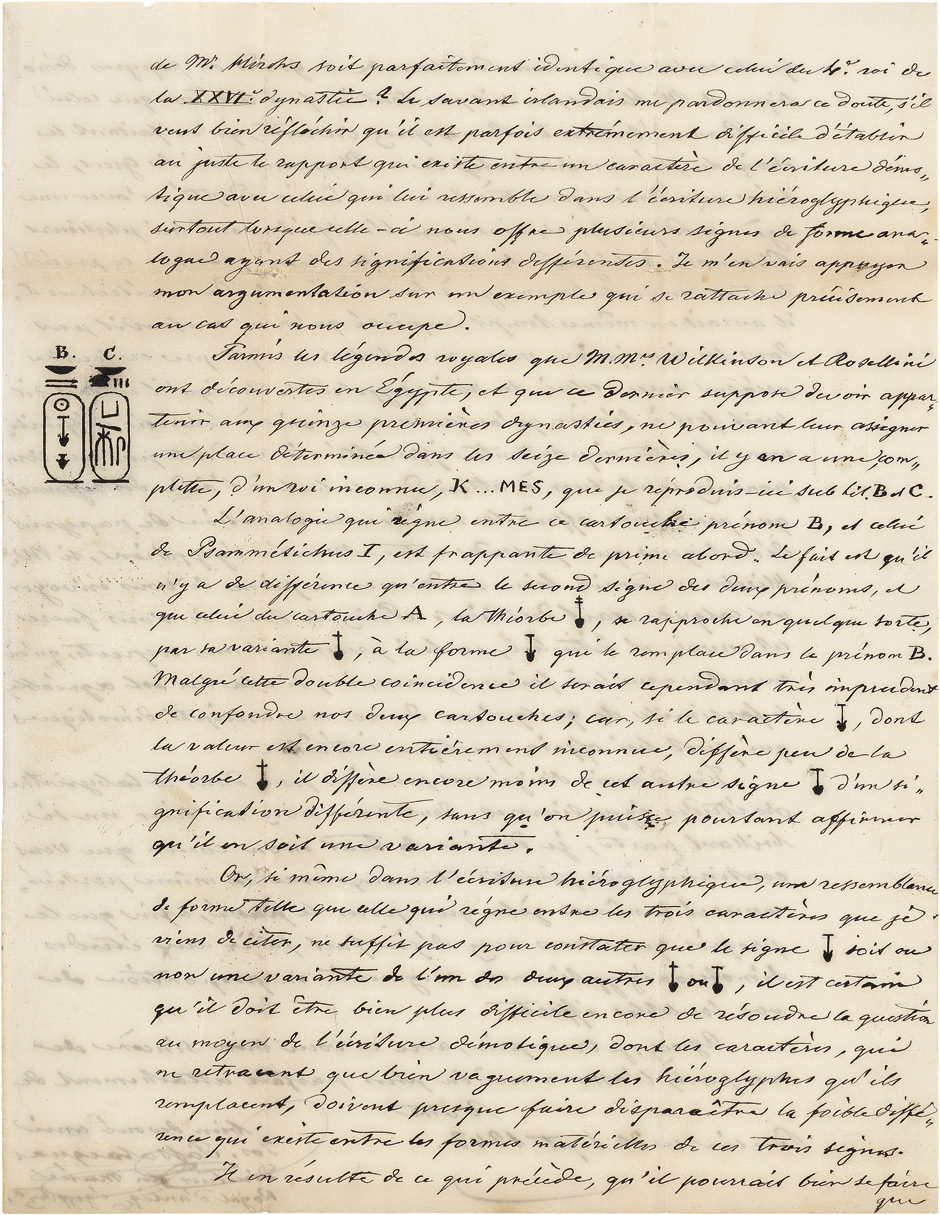 de Mr. Hincks soit parfaitement identique avec celui du 4e. roi de
la XXVIe. dynastie? Le savant irlandais me pardonnera ce doute, s'il
veut bien réfléchir qu'il est parfois extrêmement difficile d'établir
au juste le rapport qui existe entre un caractère de l'écriture démo„
tique avec celui qui lui ressemble dans l'écriture hiéroglyphique,
surtout lorsque celle-ci nous offre plusieurs signes de forme ana„
logue ayant des significations différentes. Je m'en vais appuyer
mon argumentation sur un exemple qui se rattache précisement
au cas qui nous occupe.
B. C.
Parmis les légendes royales que M.Mrs Wilkinson et Rosellini
ont découvertes en Égypte, et que ce dernier suppose devoir appar„
tenir aux quinze premières dynasties, ne pouvant leur assigner
une place déterminée dans les seize dernières, il y en a une com„
plette, d'un roi inconnu, K...MES, que je réproduis-ici sub lit. B et C.
L'analogie qui règne entre ce cartouche prénom B, et celui
de Psammétichus I, est frappante de prime abord. Le fait est qu'il
n'y a de différence qu'entre le second signe des deux prénoms, et
que celui du cartouche A, la théorbe, se rapproche en quelque sorte,
par sa variante, à la forme qui le remplace dans le prénom B.
Malgré cette double coincidence il serait cependant très imprudent
de confondre nos deux cartouches; car, si le caractère, dont
la valeur est encore entiérement inconnue, diffère peu de la
théorbe, il diffère encore moins de cet autre signe d'un si„
gnification différente, sans qu'on puisse pourtant affirmer
qu'il en soit une variante.
Or, si même dans l'écriture hiéroglyphique, une ressemblance
de forme telle que celle qui règne entre les trois caractères que je
viens de citer, ne suffit pas pour constater que le signe soit ou
non une variante de l'un des deux autres ou, il est certain
qu'il doit être bien plus difficile encore de résoudre la question
au moyen de l'écriture démotique, dont les caractères, qui
ne retracent que bien vaguement les hiéroglyphes qu'ils
remplacent, doivent presque faire disparaître la foible diffé„
rence qui existe entre les formes matérielles de ces trois signes.
Il en résulte de ce qui précède, qu'il pourrait bien se faire
que